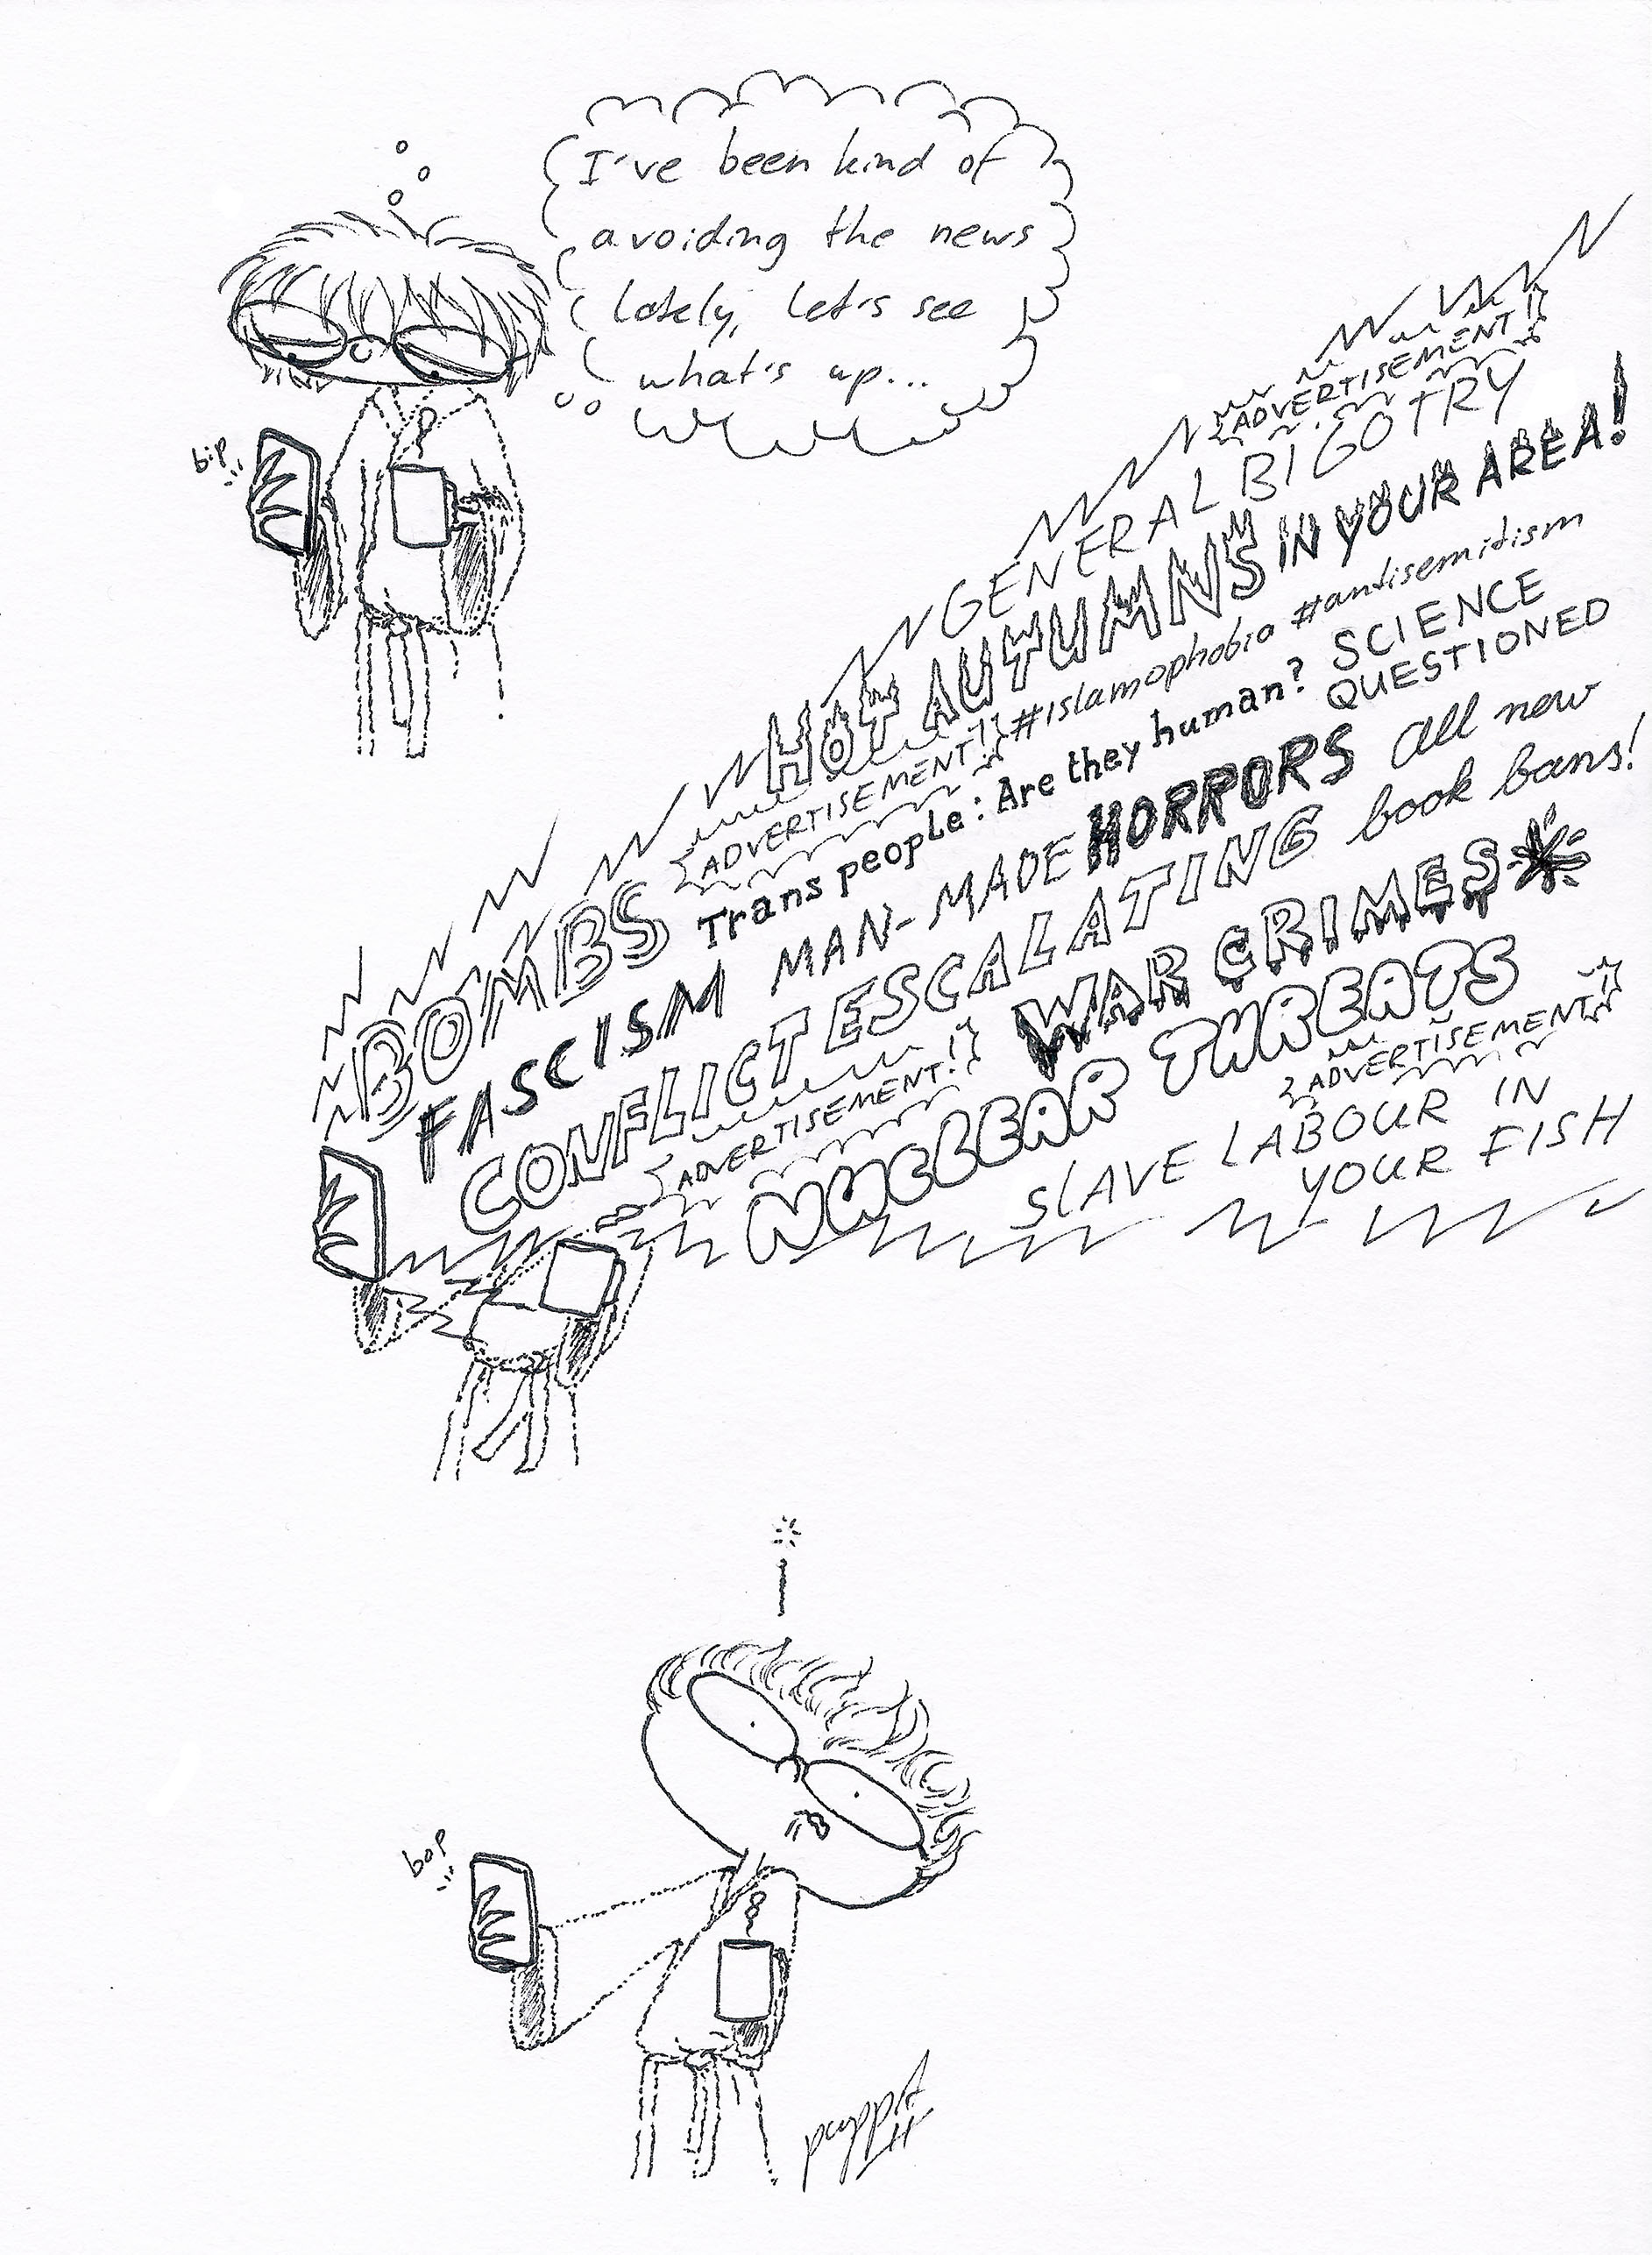 I've been kind of
avoiding the news
lately, let's see
what's up...
bip
ADVERTISEMENT!
GENERAL BIGOTRY
HOT AUTUMNS IN YOUR AREA!
#islamophobia #antisemitism
BOMBS
ADVERTISEMENT!
Trans people: Are they human?
SCIENCE
QUESTIONED
FASCISM
MAN-MADE HORRORS
all new
book bans!
CONFLICT ESCALATING
ADVERTISEMENT!
WAR CRIMES*
NUCLEAR THREATS
ADVERTISEMENT!
SLAVE LABOUR IN
YOUR FISH
bop